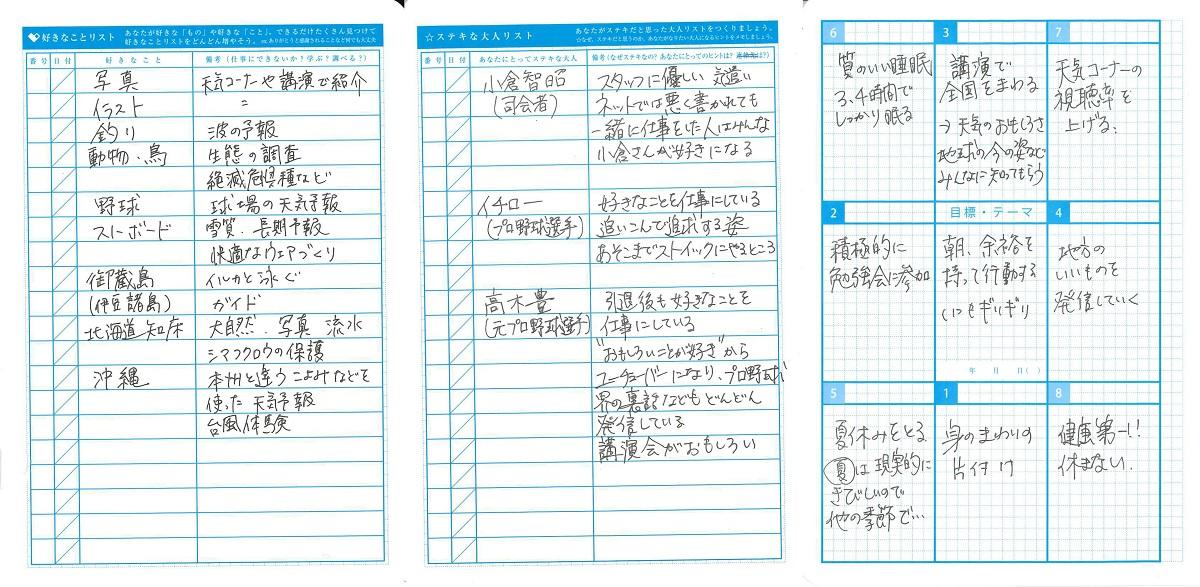 好きなことリスト
あなたが好きな「もの」や好きな「こと」、できるだけたくさん見つけて
好きなことリストをどんどん増やそう。 ex.ありがとうと感謝されることなど何でも大丈夫
番号 日付 好きなこと 備考(仕事にできないか?学ぶ?調べる?)
写真 天気コーナーや講演で紹介
イラスト 〃
釣り 波の予報
動物・鳥 生態の調査
絶滅危惧種など
野球 球場の天気予報
スノーボード 雪質、長期予報
快適なウェアづくり
御蔵島 イルカと泳ぐ
(伊豆諸島) ガイド
北海道知床 大自然、写真 流氷
シマフクロウの保護
沖縄 本州と違うこよみなどを
使った 天気予報
台風体験
☆ステキな大人リスト
あなたがステキだと思った大人リストをつくりましょう。
☆なぜ、ステキだと思うのか、あなたがなりたい大人になるヒントをメモしましょう。
番号 日付 あなたにとってのステキな大人 備考(なぜステキなの?あなたにとってのヒントは?連絡先は?)
小倉智昭 スタッフに優しい 気遣い
(司会者) ネットでは悪く書かれても
一緒に仕事をした人はみんな
小倉さんが好きになる
イチロー 好きなことを仕事にしている
(プロ野球選手) 追いこんで追求する姿
あそこまでストイックにやるところ
高木豊 引退後も好きなことを
(元プロ野球選手) 仕事にしている
"おもしろいことが好き"から
ユーチューバーになり、プロ野球
界の裏話などもどんどん
発信している
講演会がおもしろい
6
質のいい睡眠
3、4時間で
しっかり眠る
3
講演で
全国をまわる
→天気のおもしろさ
地球の今の姿など
みんなに知ってもらう
7
天気コーナーの
視聴率を
上げる。
2
積極的に
勉強会に参加
目標・テーマ
朝、余裕を
持って行動する
いつもギリギリ
年 月 日( )
4
地方の
いいものを
発信していく
5
夏休みをとる
夏は現実的に
きびしいので
他の季節で…
1
身のまわりの
片付け
8
健康第一!!
休まない。